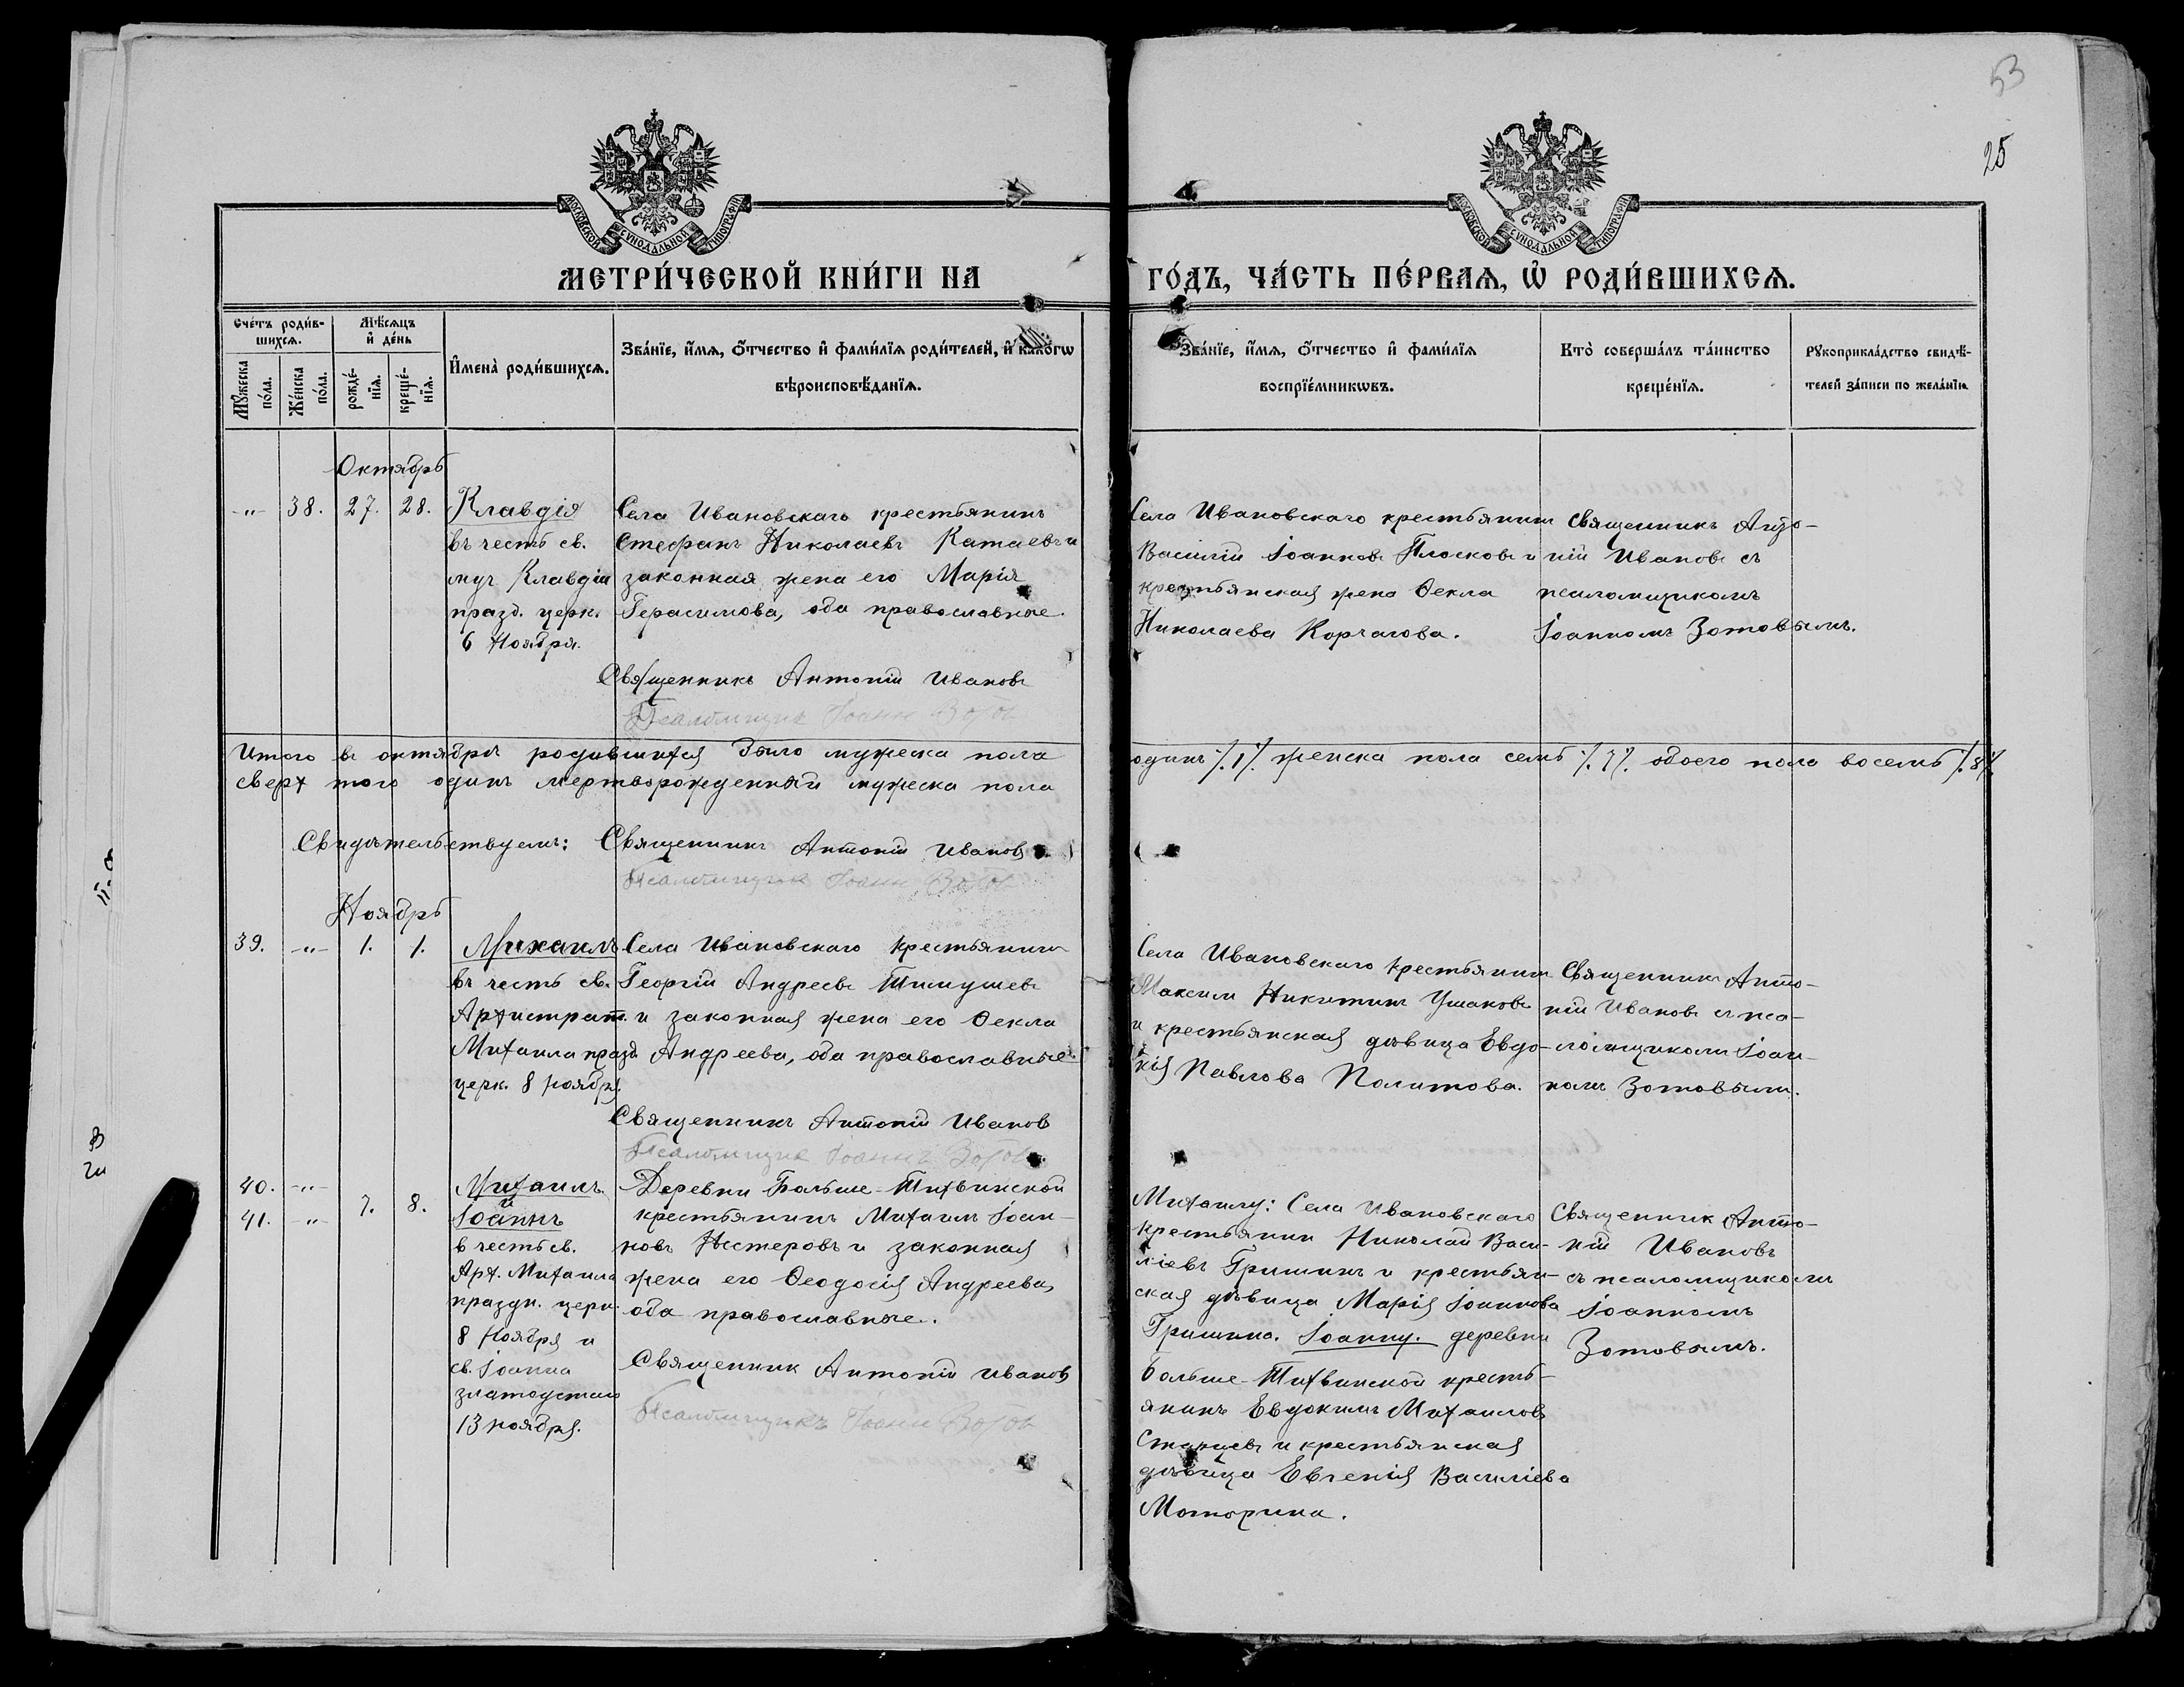 53
25
МОСКОВСКОЙ СѴНОДАЛЬНОЙ ТИПОГРАФІИ
МОСКОВСКОЙ СѴНОДАЛЬНОЙ ТИПОГРАФІИ
МЕТРИ́ЧЕСКОЙ КНИ́ГИ НА
ГО́ДЪ, ЧА́СТЬ ПЕ́РВАѦ, Ѡ҆ РОДИ́ВШИХСѦ.
Сче́тъ роди́в-
шихсѧ.
Мѣ́сѧцъ
и҆ де́нь
Мꙋ́жеска
по́ла.
Же́нска
по́ла.
рожде́-
нїѧ.
креще́-
нїѧ.
И҆мена̀ роди́вшихсѧ.
Зва́нїе, и҆́мѧ, ѻ҆́тчество и҆ фами́лїѧ роди́телей, и҆ како́гѡ
вѣроисповѣ́данїѧ.
Зва́нїе, и҆́мѧ, ѻ҆́тчество и҆ фами́лїѧ
воспрїе́мникѡвъ.
Кто̀ соверша́лъ та́инство
креще́нїѧ.
Рꙋкоприкла́дство свидѣ́-
телей за́писи по жела́нїю
Октябрь
-"- 38. 27. 28.
Клавдія
въ честь св.
муч Клавдіи
празд. церк.
6 Ноября.
Села Ивановскаго крестьянинъ
Стефанъ Николаевъ Катаевъ и
законная жена его Марія
Герасимова, оба православные.
Священникъ Антоній Ивановъ
Псаломщикъ Іоаннъ Зотов
Села Ивановскаго крестьянинъ
Василій Іоанновъ Плосковъ и
крестьянская жена Ѳекла
Николаева Корчагова.
Священникъ Анто-
ній Ивановъ съ
псаломщикомъ
Іоанномъ Зотовымъ.
Итого въ октябрѣ родившихся было мужеска пола
одинъ /.1/. женска пола семь /.7/. обоего пола восемь /.8/.
сверх того одинъ мертворожденный мужеска пола
Свидѣтельствуемъ: Священникъ Антоній Ивановъ
Псаломщикъ Іоаннъ Зотов
Ноябрь
39. -"- 1. 1.
Михаилъ
въ честь св.
Архистрат.
Михаила празд
церк. 8 ноября.
Села Ивановскаго крестьянинъ
Георгій Андреевъ Тимушевъ
и законная жена его Ѳекла
Андреева, оба православные.
Священникъ Антоній Ивановъ
Псаломщикъ Іоаннъ Зотов
Села Ивановскаго крестьянинъ
Максим Никитинъ Ушаковъ
и крестьянская дѣвица Евдо-
кія Павлова Политова.
Священникъ Анто-
ній Ивановъ съ пса-
ломщикомъ Іоан-
номъ Зотовымъ.
40. -"-
41. -"-
7. 8.
Михаилъ
и
Іоаннъ
в честь св.
Арх. Михаила
праздн. церк.
8 Ноября и
св. Іоанна
златоустаго
13 ноября.
Деревни Больше-Тихвинской
крестьянинъ Михаилъ Іоан-
новъ Нестеровъ и законная
жена его Ѳеодосія Андреева,
оба православные.
Священник Антоній Ивановъ
Псаломщикъ Іоаннъ Зотов
Михаилу: Села Ивановскаго
крестьянин Николай Васи-
ліевъ Гришинъ и крестьян-
ская дѣвица Марія Іоаннова
Гришина. Іоанну. деревни
Больше-Тихвинской кресть-
янинъ Евдокимъ Михаиловъ
Старцевъ и крестьянская
дѣвица Евгенія Василіева
Моторина.
Священник Анто-
ній Ивановъ
съ псаломщикомъ
Іоанномъ
Зотовымъ.